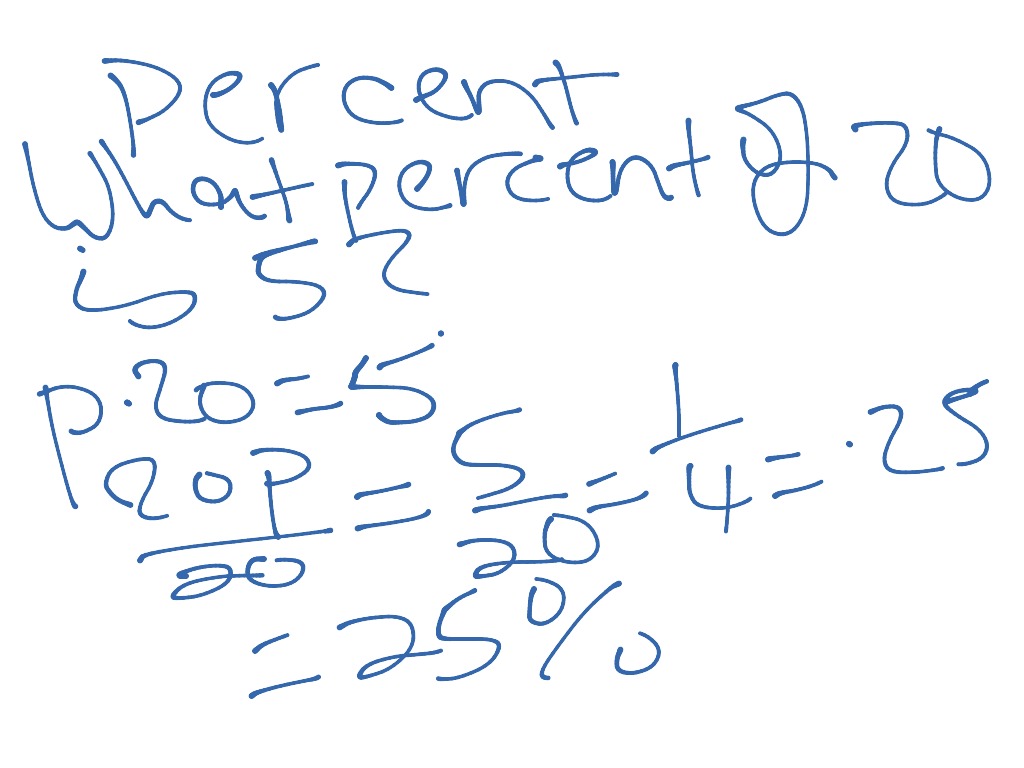 Percent
What percent of 20
is 5?
p · 20 = 5
20p/20 = 5/20 = 1/4 = .25
= 25%